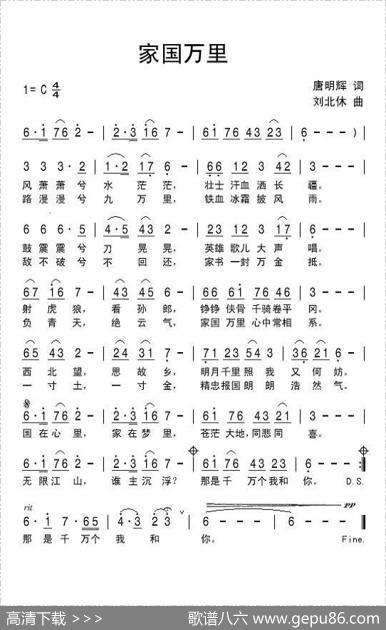 家国万里
1=C 4/4
唐明辉 词
刘北休 曲
6·1 76 2 - | 2·3 16 7 - | 61 76 43 23 | 3 - - - )
3 3 3·2 | 1·2 17 6 - | 66 12 3 42 | 3 - - - |
风萧萧兮 水茫茫， 壮士汗血洒长 疆，
路漫漫兮 九万里， 铁血冰霜披风 雨，
6 6 6·5 | 4·5 43 2 - | 22 12 3 17 | 6 - - - |
鼓震震兮 刀晃晃， 英雄歌儿大声 唱，
敌不破兮 不回还， 家书一封万金 抵，
67 16 7 - | 43 45 6 - | 66 61 76 46 | 3 - - - |
射虎狼， 看孙郎， 铮铮侠骨千骑卷平 冈。
负青天， 绝云气， 家国万里心中常相 系。
65 43 2 - | 24 31 7 - | 71 23 54 53 | 36 21 6 - |
西北望， 思故乡， 明月千里照我 又何妨。
一寸土， 一寸金， 精忠报国朗朗 浩然气。
6·1 76 2 - | 2·3 16 7 - | 61 76 43 21 | 3 - - - |
国在心里， 家在梦里， 苍茫大地，同悲同 喜。
6·1 76 2 - | 2·3 16 7 - | 61 76 43 23 | 6 - - - :|
无限江山， 谁主沉浮？ 那是千万个我和 你。 D.S.
rit pp
6·1 7·65 | 4·3 23 | 6 - - - | 6 - - - ‖
那是千万个 我和 你。 Fine.
高清下载 >>> 歌谱八六 www.gepu86.com